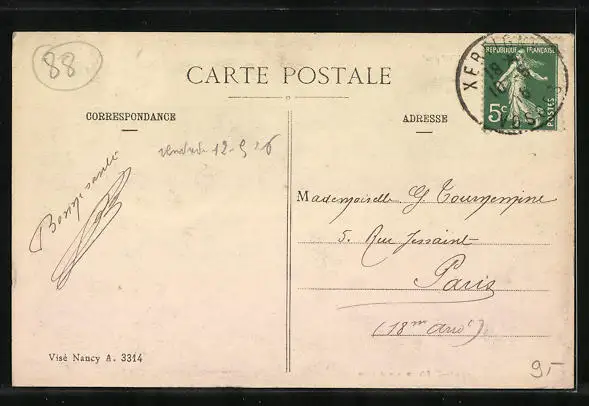 88
CARTE POSTALE
CORRESPONDANCE
ADRESSE
REPUBLIQUE FRANÇAISE
5c
POSTES
18
VOSGES
vendredi 12-5
Bonne santé
Mademoiselle G. Tournemine
5. Rue Jessaint
Paris
(18me arrt)
Visé Nancy A. 3314
9.-